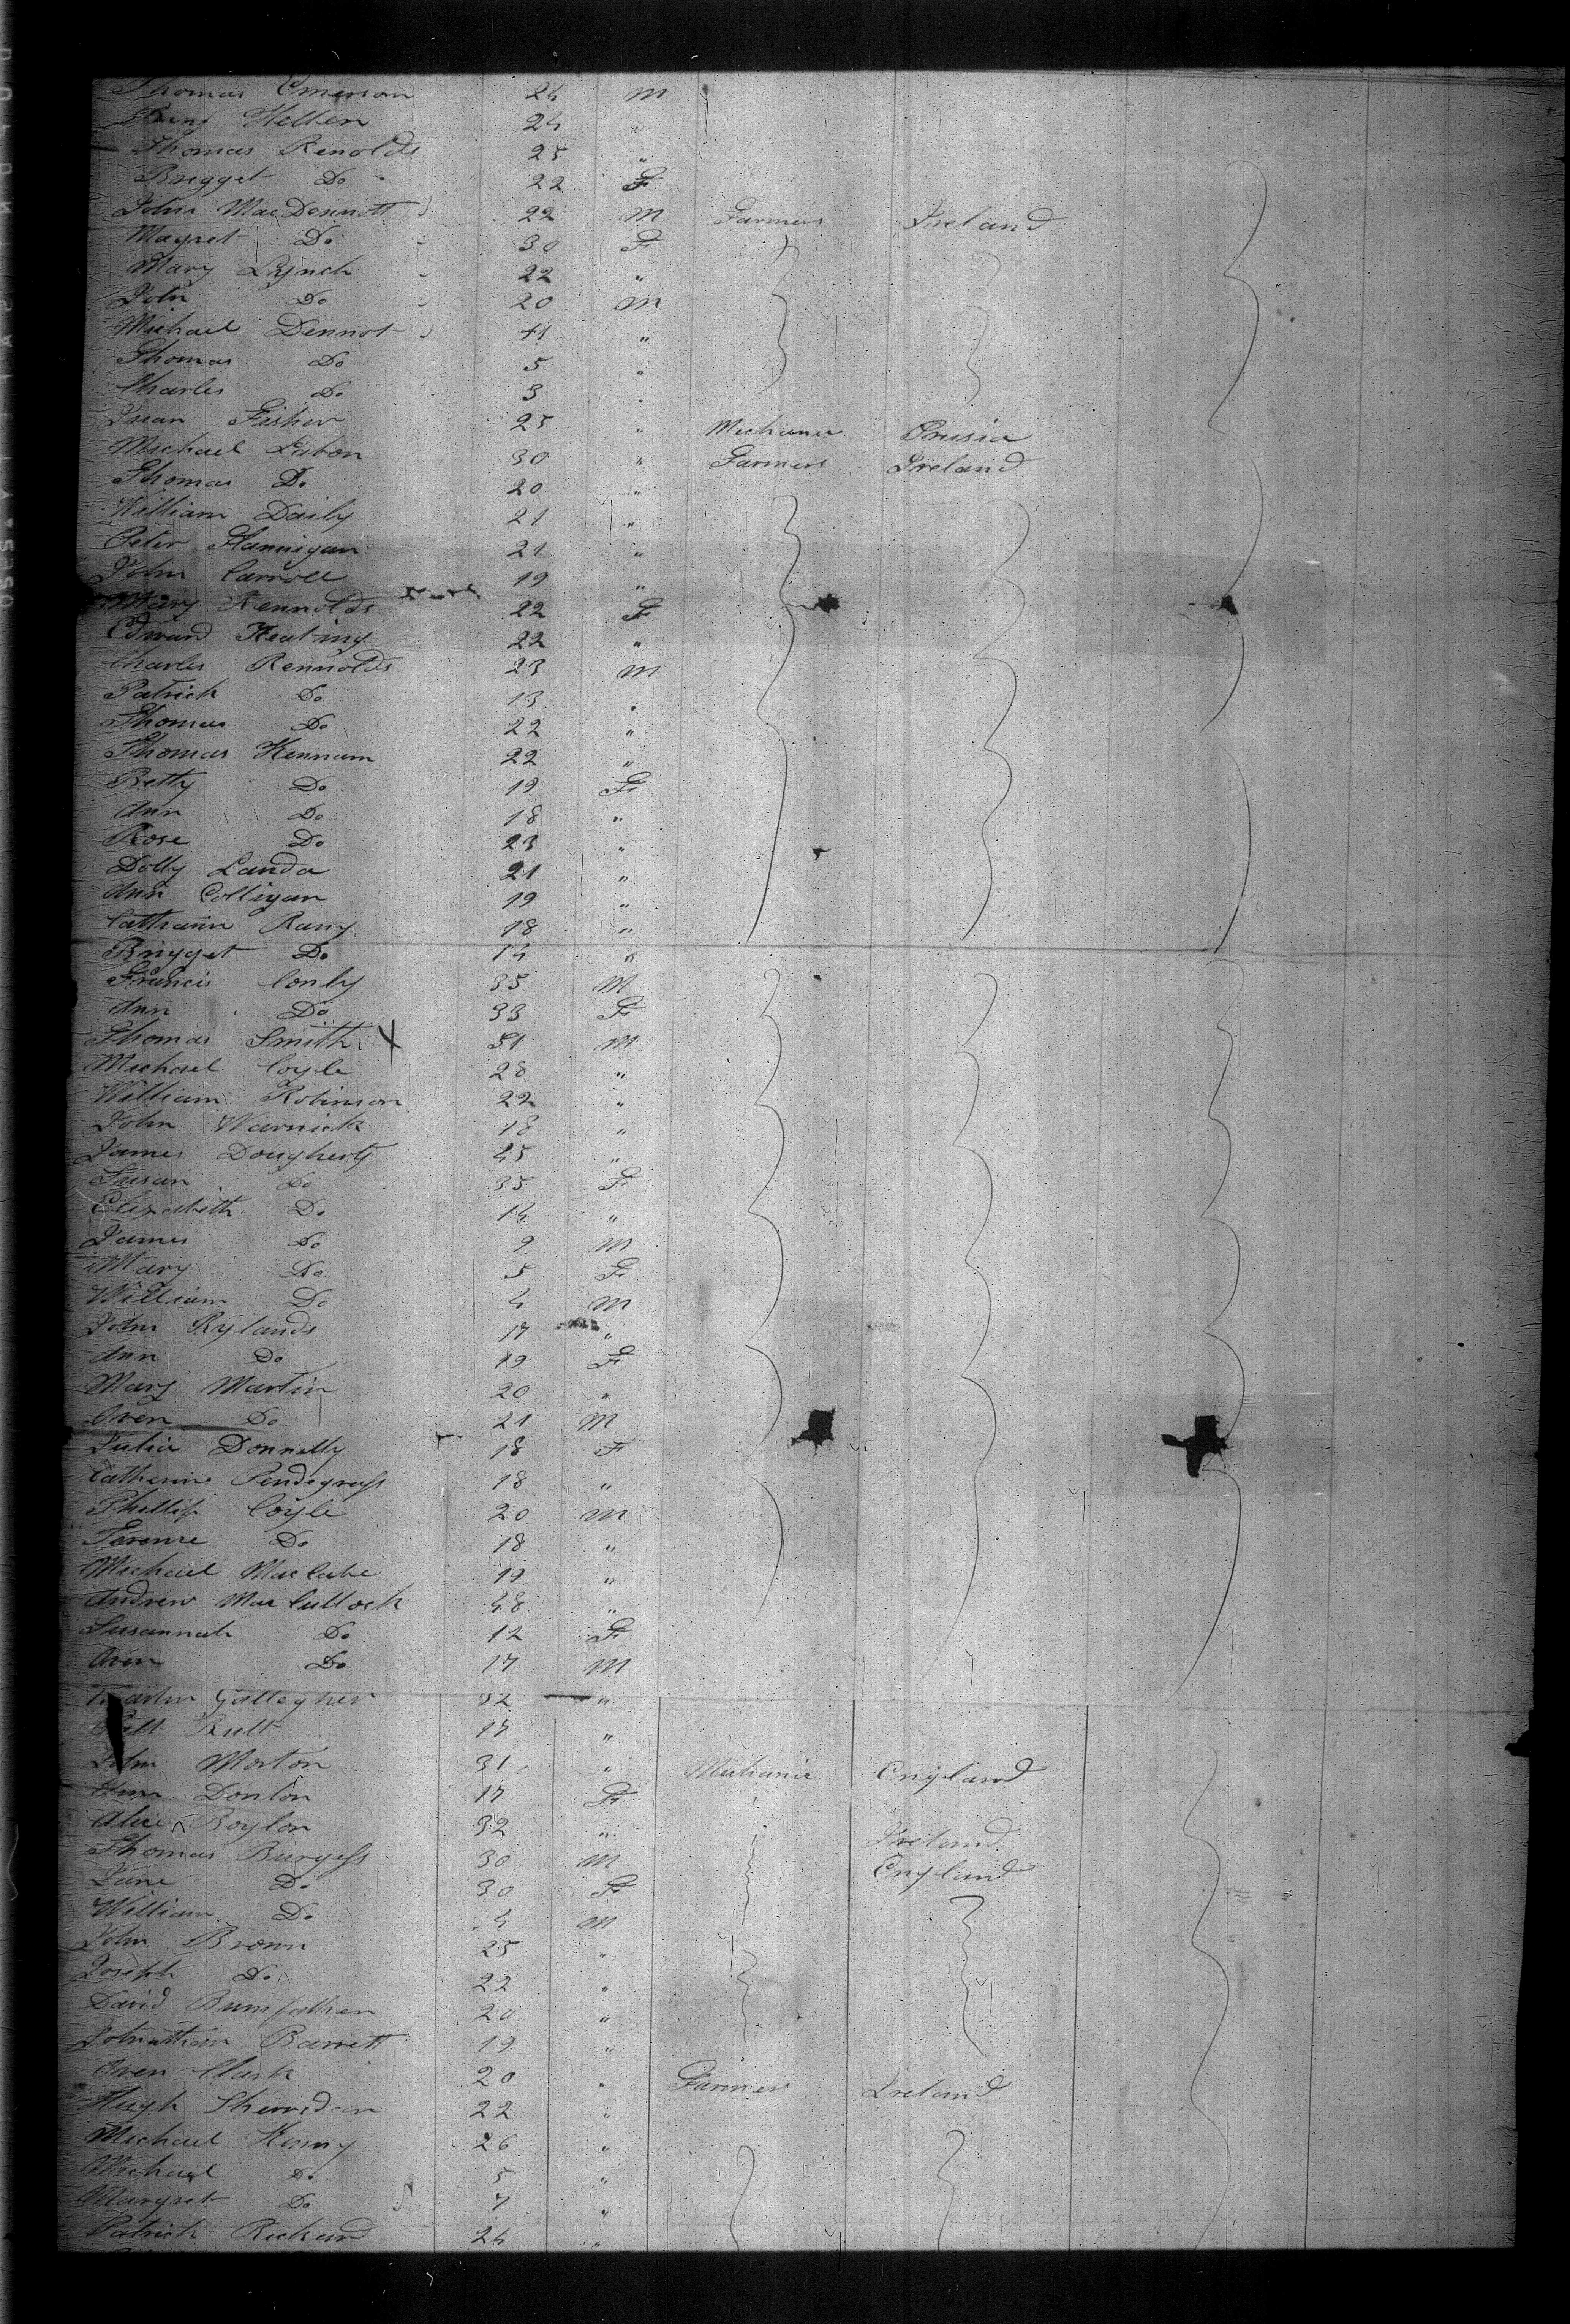 Thomas Emerson 24 M
Hellen 24 "
Thomas Renolds 25 "
Brigget Do 22 F
John MacDennott 22 M Farmers Ireland
Magret Do 30 F
Mary Lynch 22 "
John Do 20 M
Michael Dennot "
Thomas Do 5 "
Charles Do 3 "
Fisher 25 " Mechanic Prusia
Michael 30 " Farmers Ireland
Thomas Do 20 "
William Daily 21 "
Peter Flannigan 21 "
John Carroll 19 "
Mary Rennolds 22 F
Edward Keating 22 "
Charles Rennolds 23 M
Patrick Do 13 "
Thomas Do 22 "
Thomas Kennam 22 "
Betty Do 19 F
Ann Do 18 "
Rose Do 23 "
Dolly Landa 21 "
Ann Colligan 19 "
Cathrann Rany 18 "
Brigget Do 14 "
Francis Conly 35 M
Ann Do 33 F
Thomas Smith X 51 M
Michael Coyle 28 "
William Robinson 22 "
John Warnick 18 "
James Dougherty 45 "
Susan Do 35 F
Elizabith Do 14 "
James Do 9 M
Mary Do 5 F
William Do 4 M
John Rylands 17 "
Ann Do 19 F
Mary Martin 20 "
Owen Do 21 M
Julia Donnelly 18 F
Catherine Pendegrass 18 "
Phillip Coyle 20 M
Terence Do 18 "
Michael MacCabe 19 "
Andrew MacCullock 48 "
Susannah Do 12 F
Owen Do 17 M
Martin Gallegher 32 "
Rult 17 "
John Morton 31 " Mechanic England
Ann Donlon 17 F
Alice Boylon 32 " Ireland
Thomas Burgess 30 M England
Jane Do 30 F
William Do 4 M
John Brown 25 "
Joseph Do 22 "
David 20 "
Johnathan Barrett 19 "
Owen Clark 20 " Farmer Ireland
Hugh Sherridan 22 "
Michael Kenny 26 "
Michael Do 5 "
Margret Do 7 "
Patrick Rickard 24 "